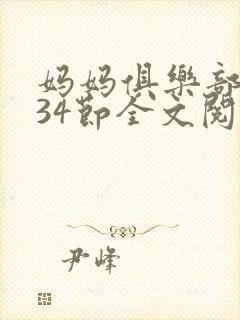 妈妈俱樂部
34節全文閱
尹峰